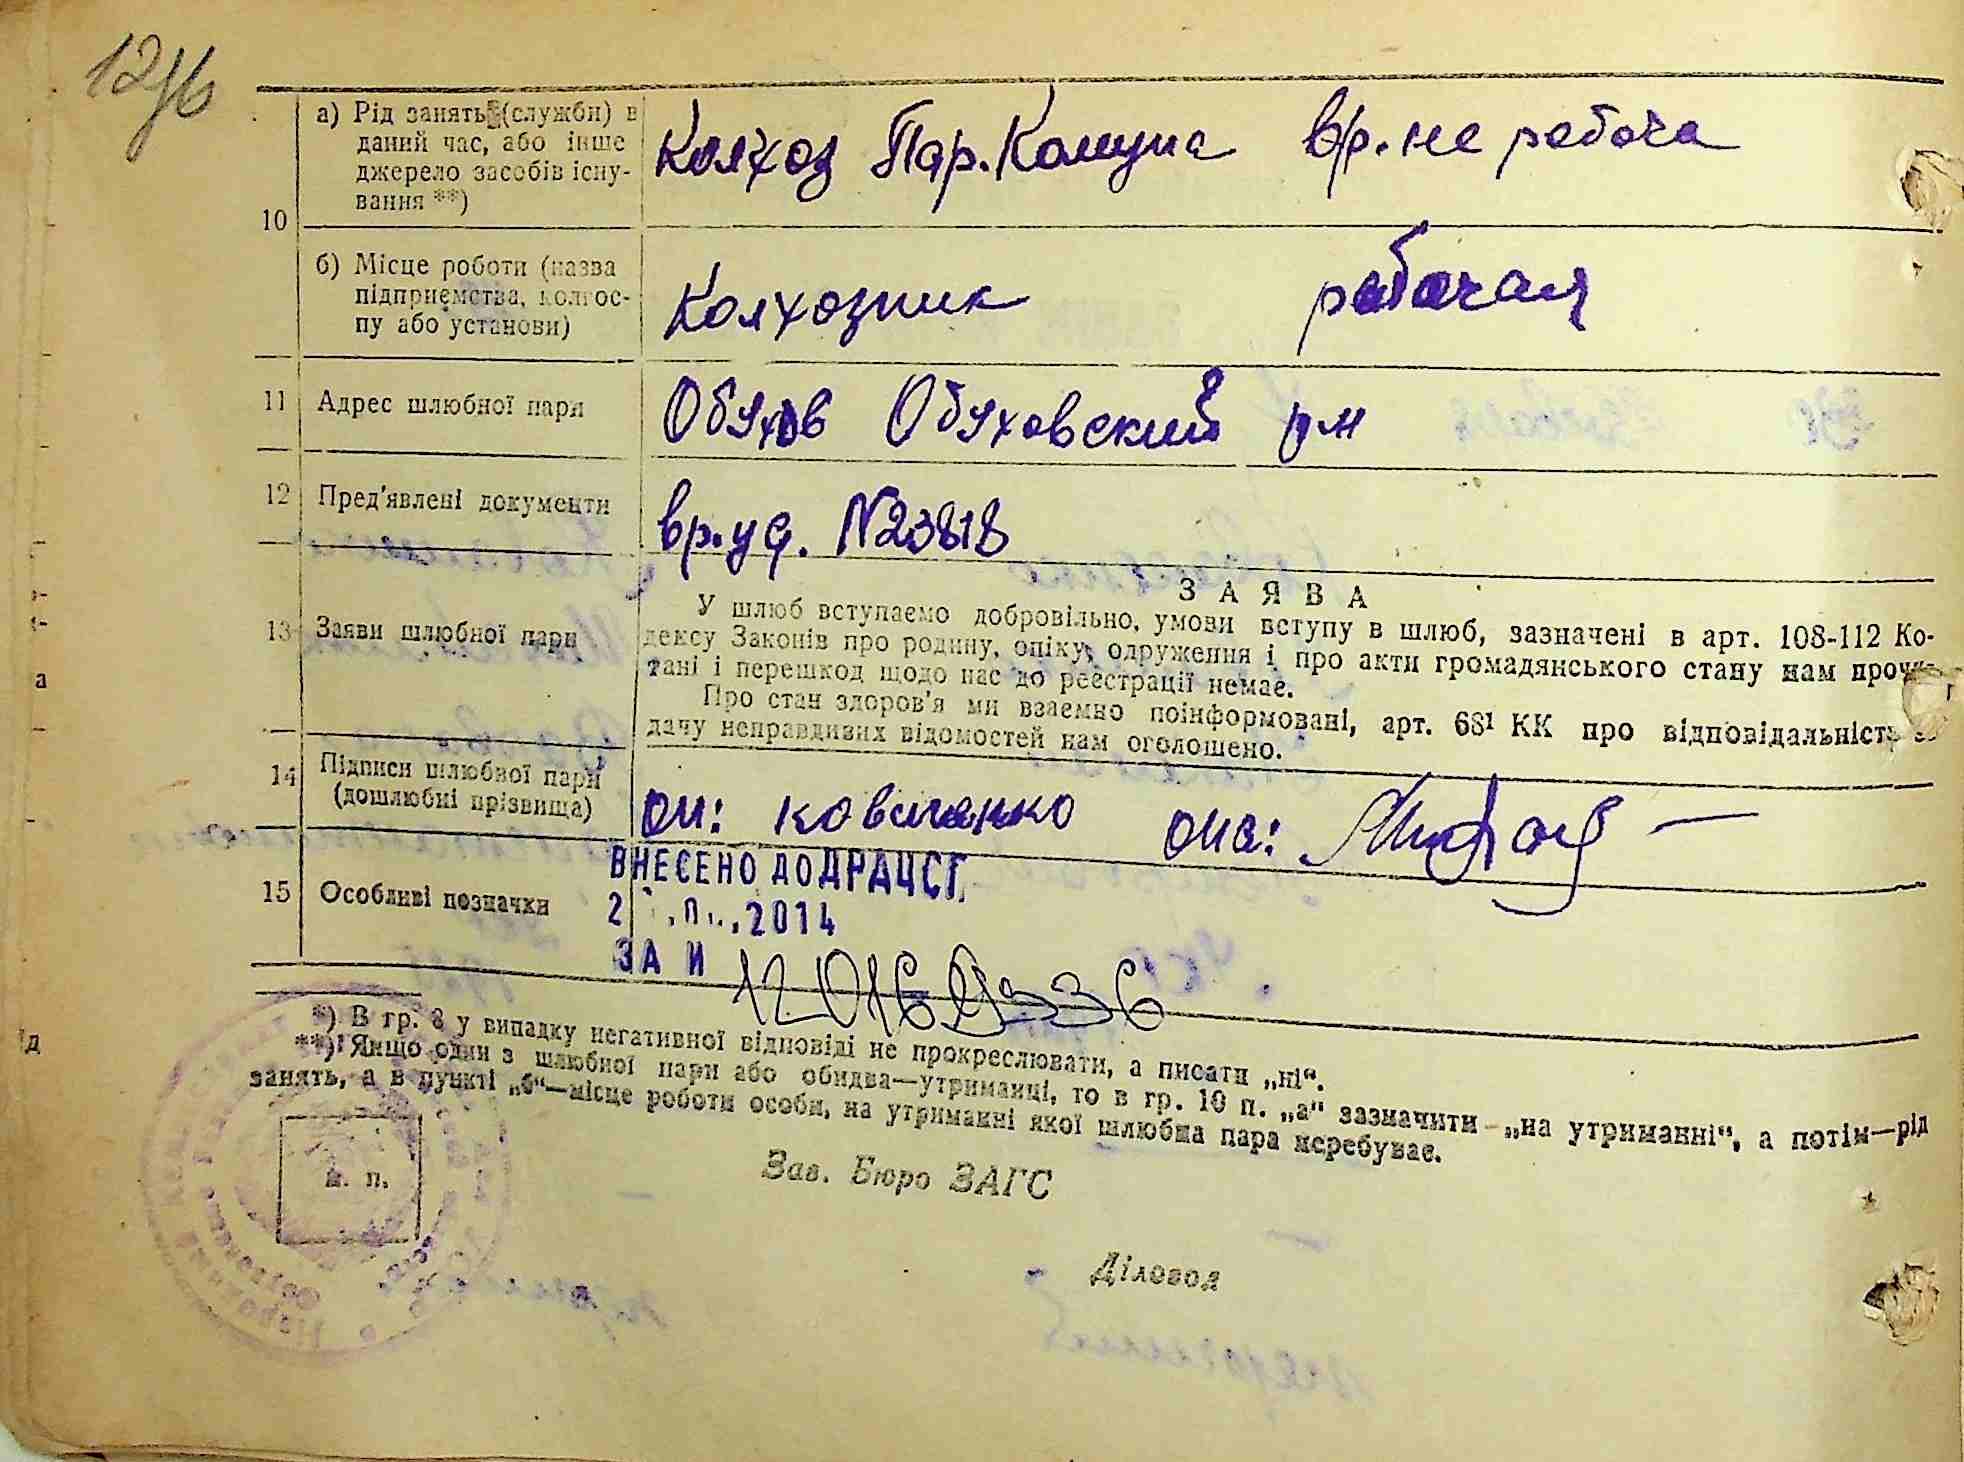 а) Рід занять (служби) в
даний час, або інше
джерело засобів існу-
вання **)
Колхоз Пар. Комуна вр. не рабоча
10
б) Місце роботи (назва
підприємства, колгос-
пу або установи)
Колхозник рабочая
11 Адрес шлюбної пари Обухов Обуховский рн
12 Пред'явлені документи вр. уд. N23818
13 Заяви шлюбної пари
ЗАЯВА
У шлюб вступаємо добровільно, умови вступу в шлюб, зазначені в арт. 108-112 Ко-
дексу Законів про родину, опіку, одруження і про акти громадянського стану нам прочи-
тані і перешкод щодо нас до реєстрації немає.
Про стан здоров'я ми взаємно поінформовані, арт. 68¹ КК про відповідальність
дачу неправдивих відомостей нам оголошено.
14 Підписи шлюбної пари
(дошлюбні прізвища)
он: Коваленко она:
15 Особливі позначки
ВНЕСЕНО ДО ДРАЦСГ
2014
ЗА И
*) В гр. 8 у випадку негативної відповіді не прокреслювати, а писати „ні“.
**) Якщо один з шлюбної пари або обидва—утриманці, то в гр. 10 п. „а“ зазначити „на утриманні“, а потім—рід
занять, а в пункті „б“—місце роботи особи, на утриманні якої шлюбна пара перебуває.
м. п.
Зав. Бюро ЗАГС
Діловод